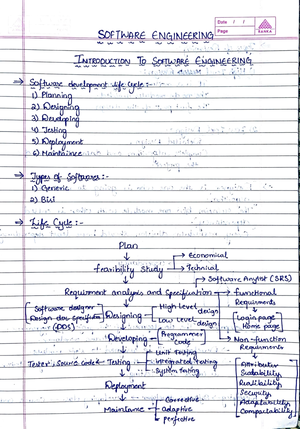 Date / /
Page
RANKA
SOFTWARE ENGINEERING
INTRODUCTION TO SOFTWARE ENGINEERING
⇒ Software development life cycle :-
1) Planning
2) Designing
3) Developing
4) Testing
5) Deployment
6) Maintaince
⇒ Types of Softwares :-
1) Generic
2)
⇒ Life Cycle :-
Plan
feasibility Study → Economical
→ Technical
→ Software Analyst (SRS)
Requirment analysis and Specification → functional Requirments
[Login page Home page]
→ Non-function Requirements
[Software designer Design doc (DDS)] Designing → High level design
→ Low level design
Developing → [Programmer Code]
Tester, Source Code ← Testing → Unit Testing
→ Integrated Testing
→ System Testing
Deployment
Maintaince → Corrective
→ adaptive
→ perfective
Security
Adaptability